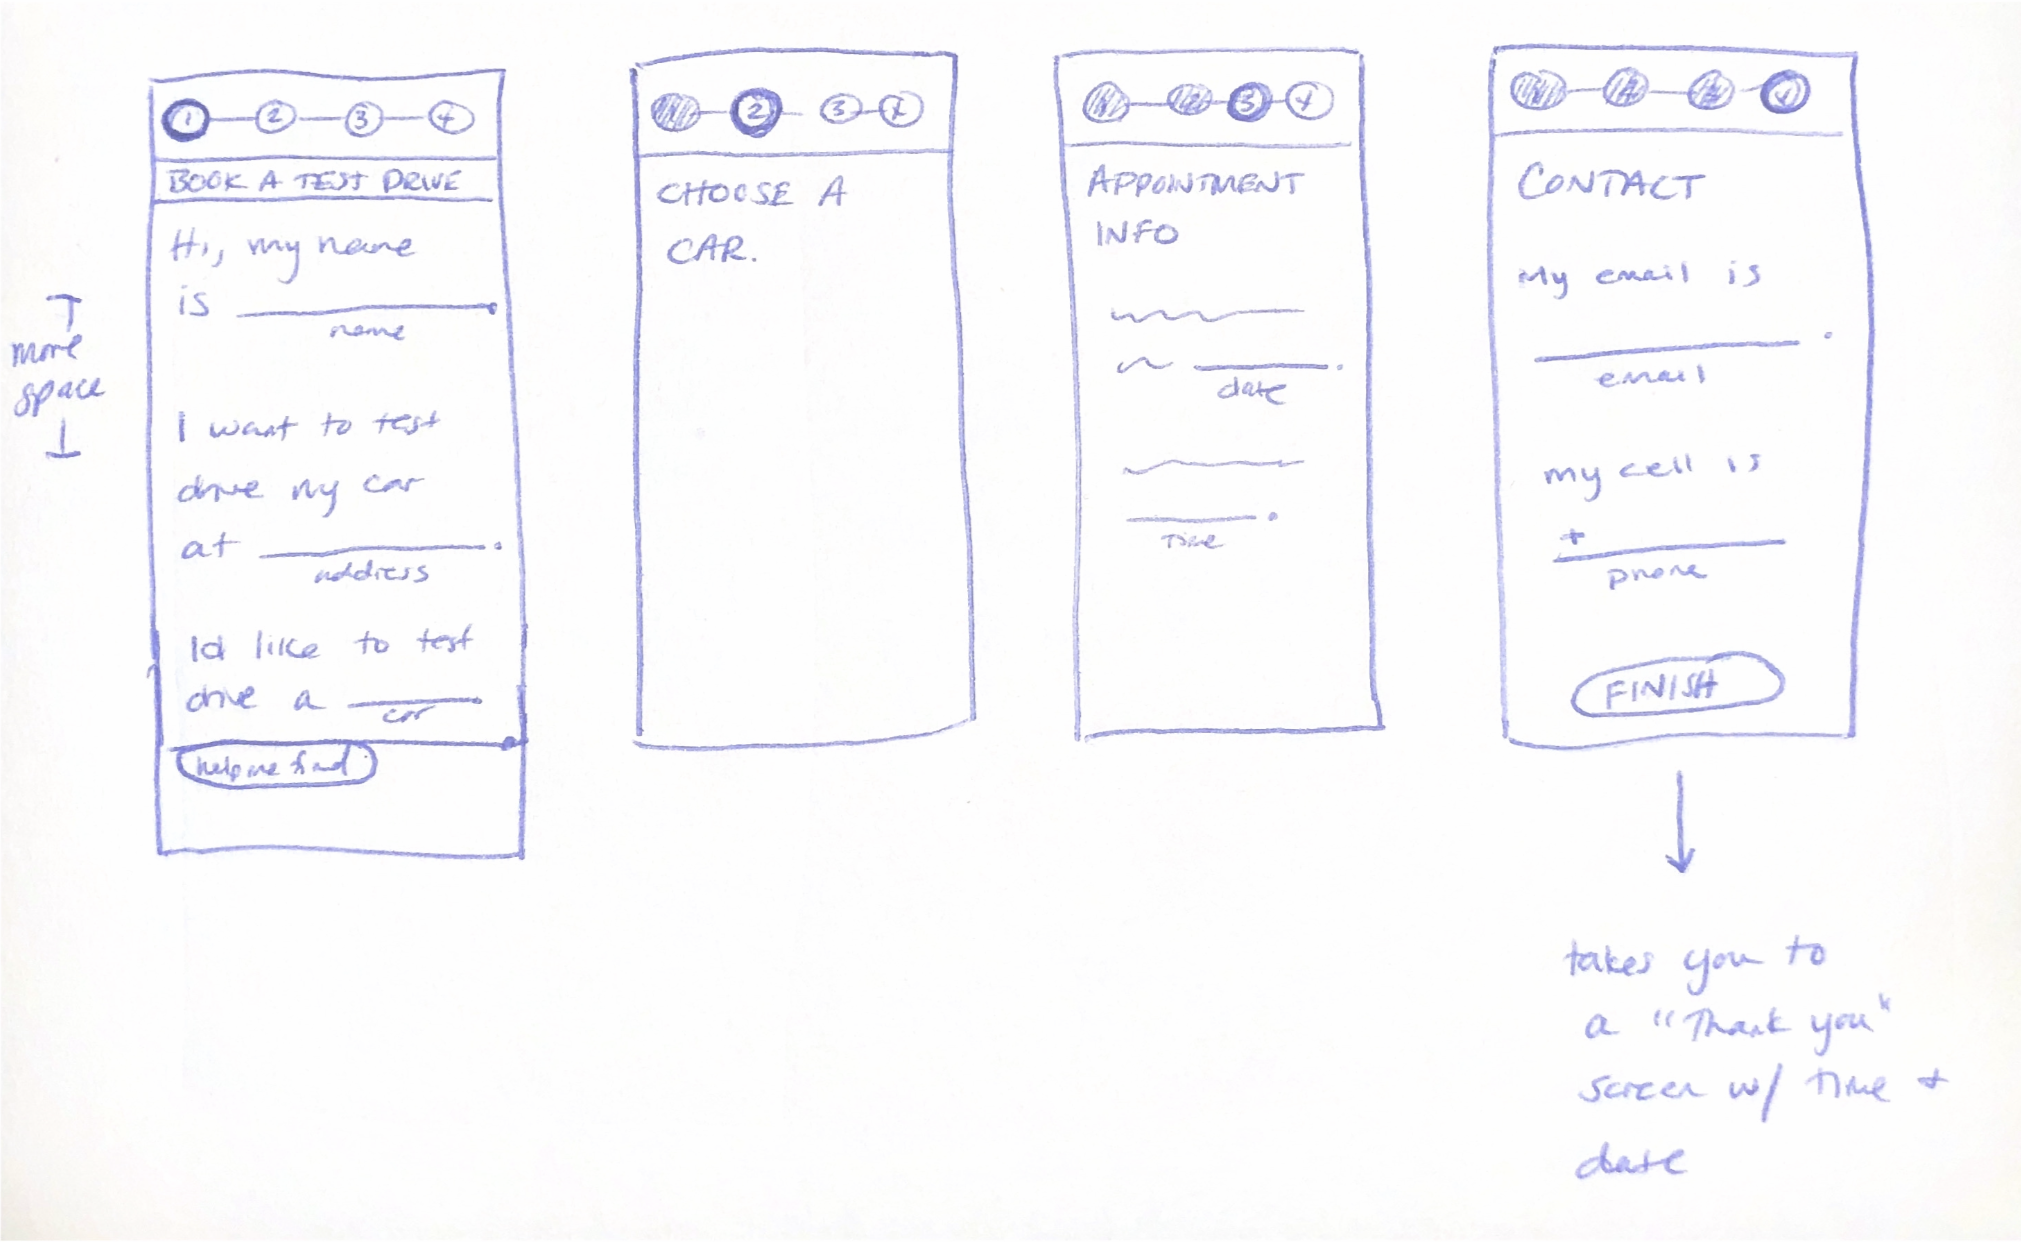 1 2 3 4
BOOK A TEST DRIVE
Hi, my name
is
name
I want to test
drive my car
at .
address
Id like to test
drive a
car
help me find
more
space
2 3 4
CHOOSE A
CAR.
1 2 3 4
APPOINTMENT
INFO
.
date
.
Time
4
CONTACT
My email is
.
email
my cell is
+
phone
FINISH
takes you to
a "Thank you"
screen w/ Time +
date